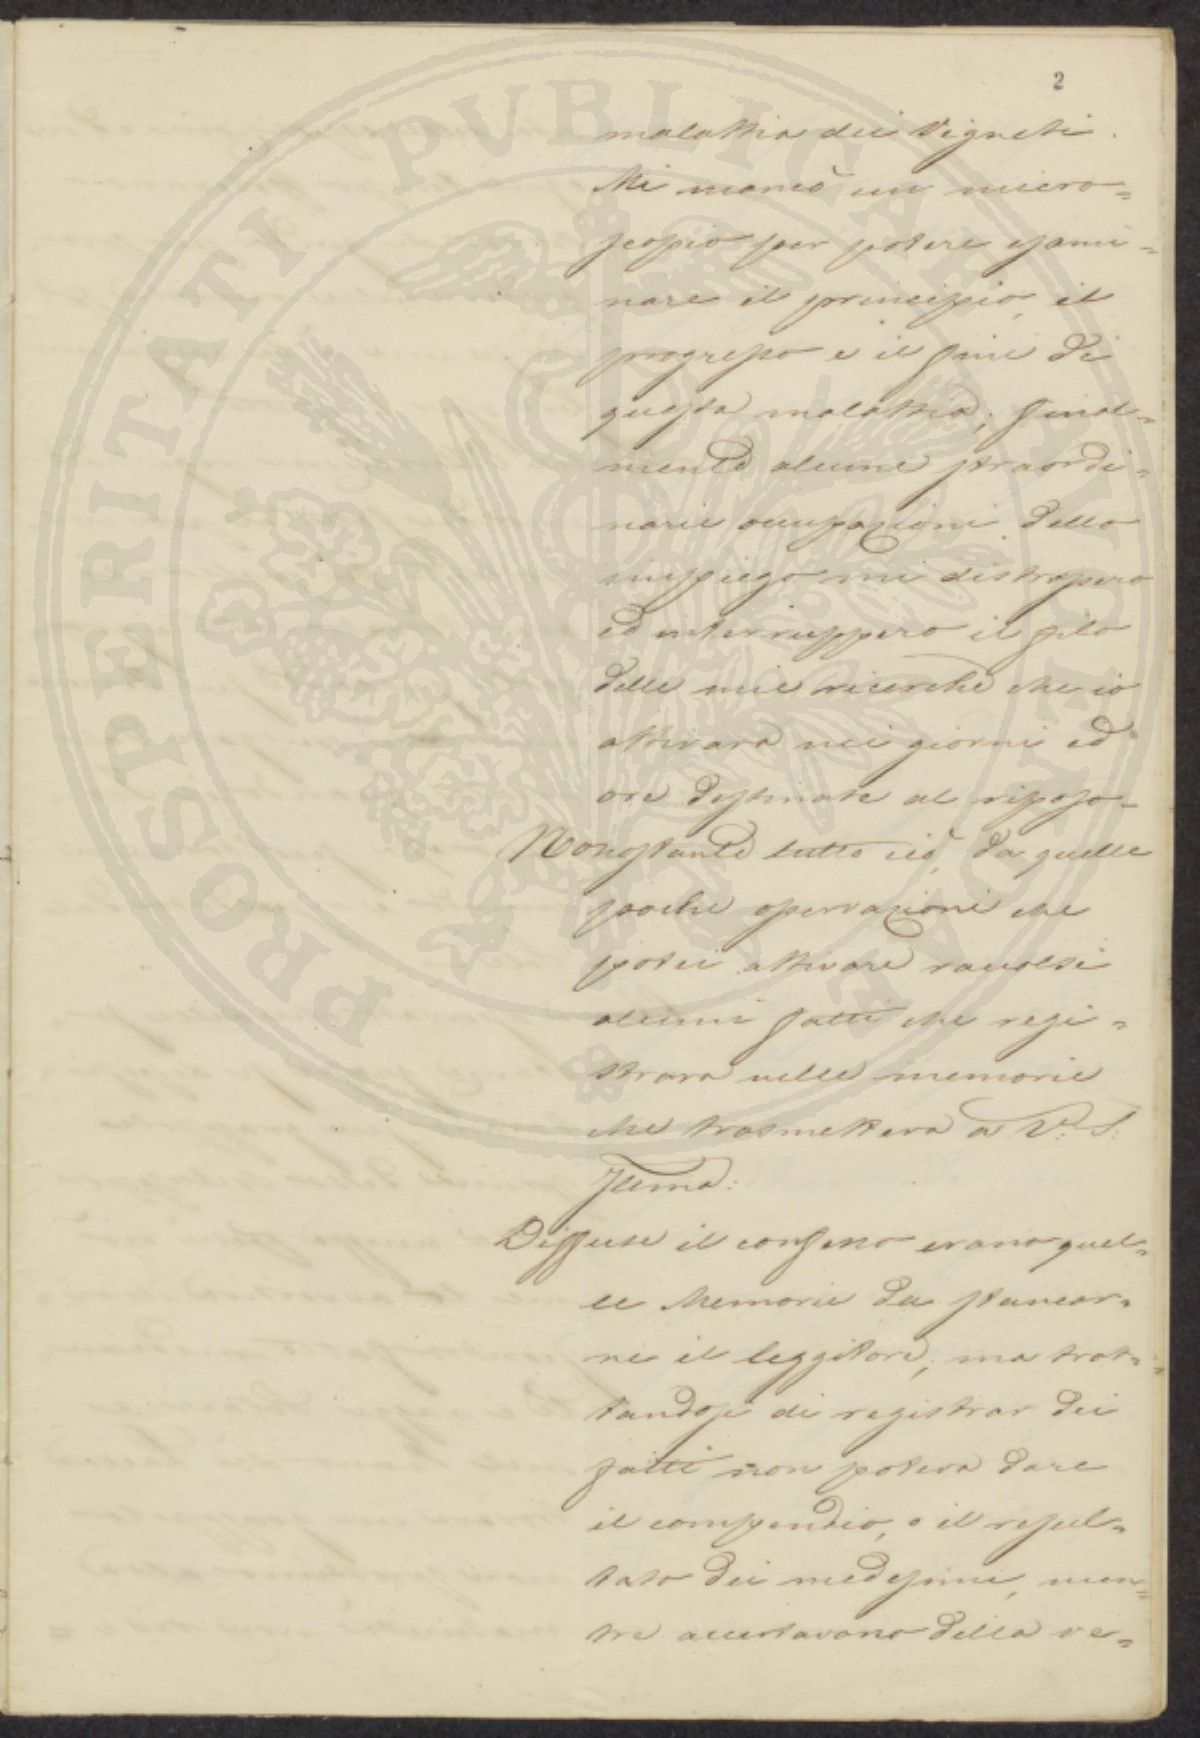 2
malattia dei Vigneti.
Mi mancò un micro=
scopio per potere esami=
nare il principio, il
progresso e il fine di
questa malattia; final=
mente alcune straordi=
narie occupazioni dello
impiego mi distrassero
ed interruppero il filo
delle mie ricerche che io
attivava nei giorni ed
ore destinate al riposo.
Nonostante tutto ciò, da quelle
poche osservazioni che
potei attivare raccolsi
alcuni fatti che regi=
strava nelle memorie
che trasmetteva a V: S:
Illma:
Diffuse il confesso erano quel=
le Memorie da stancar=
ne il leggitore, ma trat=
tandosi di registrar dei
fatti non poteva dare
il compendio, o il resul=
tato dei medesimi, men=
tre accertavano della ve=
PROSPERITATI PVBLICAE AVGENDAE